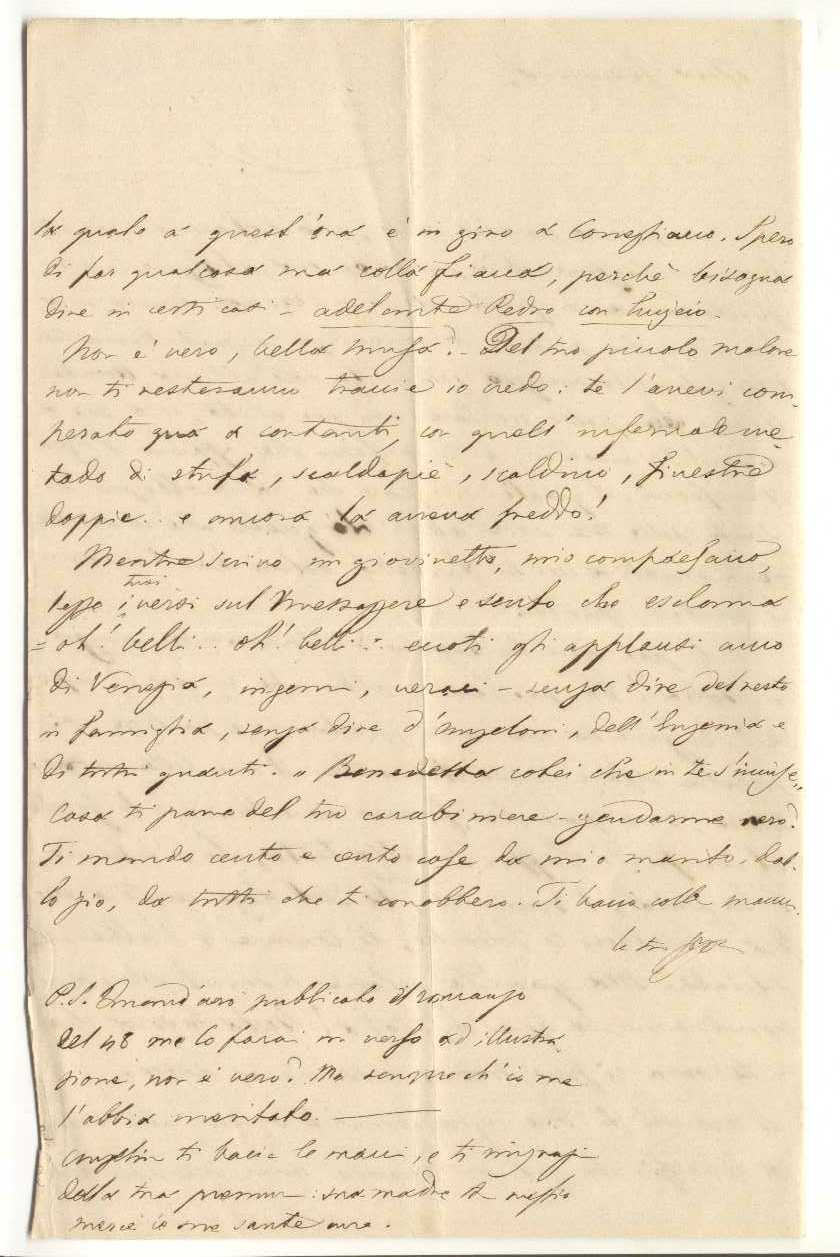 la quale a quest'ora è in giro a Conegliano. Spero
di far qualcosa ma colla fiaca, perchè bisogna
dire in certi casi - adelante Pedro con
Non è vero, bella musa? - Del tuo piccolo malore
non ti resteranno traccie io credo: te l'avevi com-
perato qua a contanti, con quell' infernale me-
todo di stufa, scaldapiè, scaldino, finestre
doppie.. e ancora la aveva freddo!
Mentre scrivo un giovinetto, mio compaesano,
legge i tuoi versi sul Messaggere e sento che esclama
= oh! belli.. oh! belli =. eccoti gli applausi anco
di Venezia, ingenui, veraci - senza dire del resto
in famiglia, senza dire d'Angeloni, dell'Eugenia e
di tutti quanti. " Benedetta colei che in te s'incinse „
Cosa ti parve del tuo carabiniere - gendarme vero?
Ti mando cento e cento cose da mio marito, dal-
lo zio, da tutti che ti conobbero. Ti bacio colle mani.
la tua
P.S. Quand'avrò publicato il romanzo
del 48 me lo farai un verso ad illustra-
zione, non è vero? Ma sempre ch'io me
l'abbia meritato.
ti bacia le mani, e ti ringrazia
della tua premura: sua madre